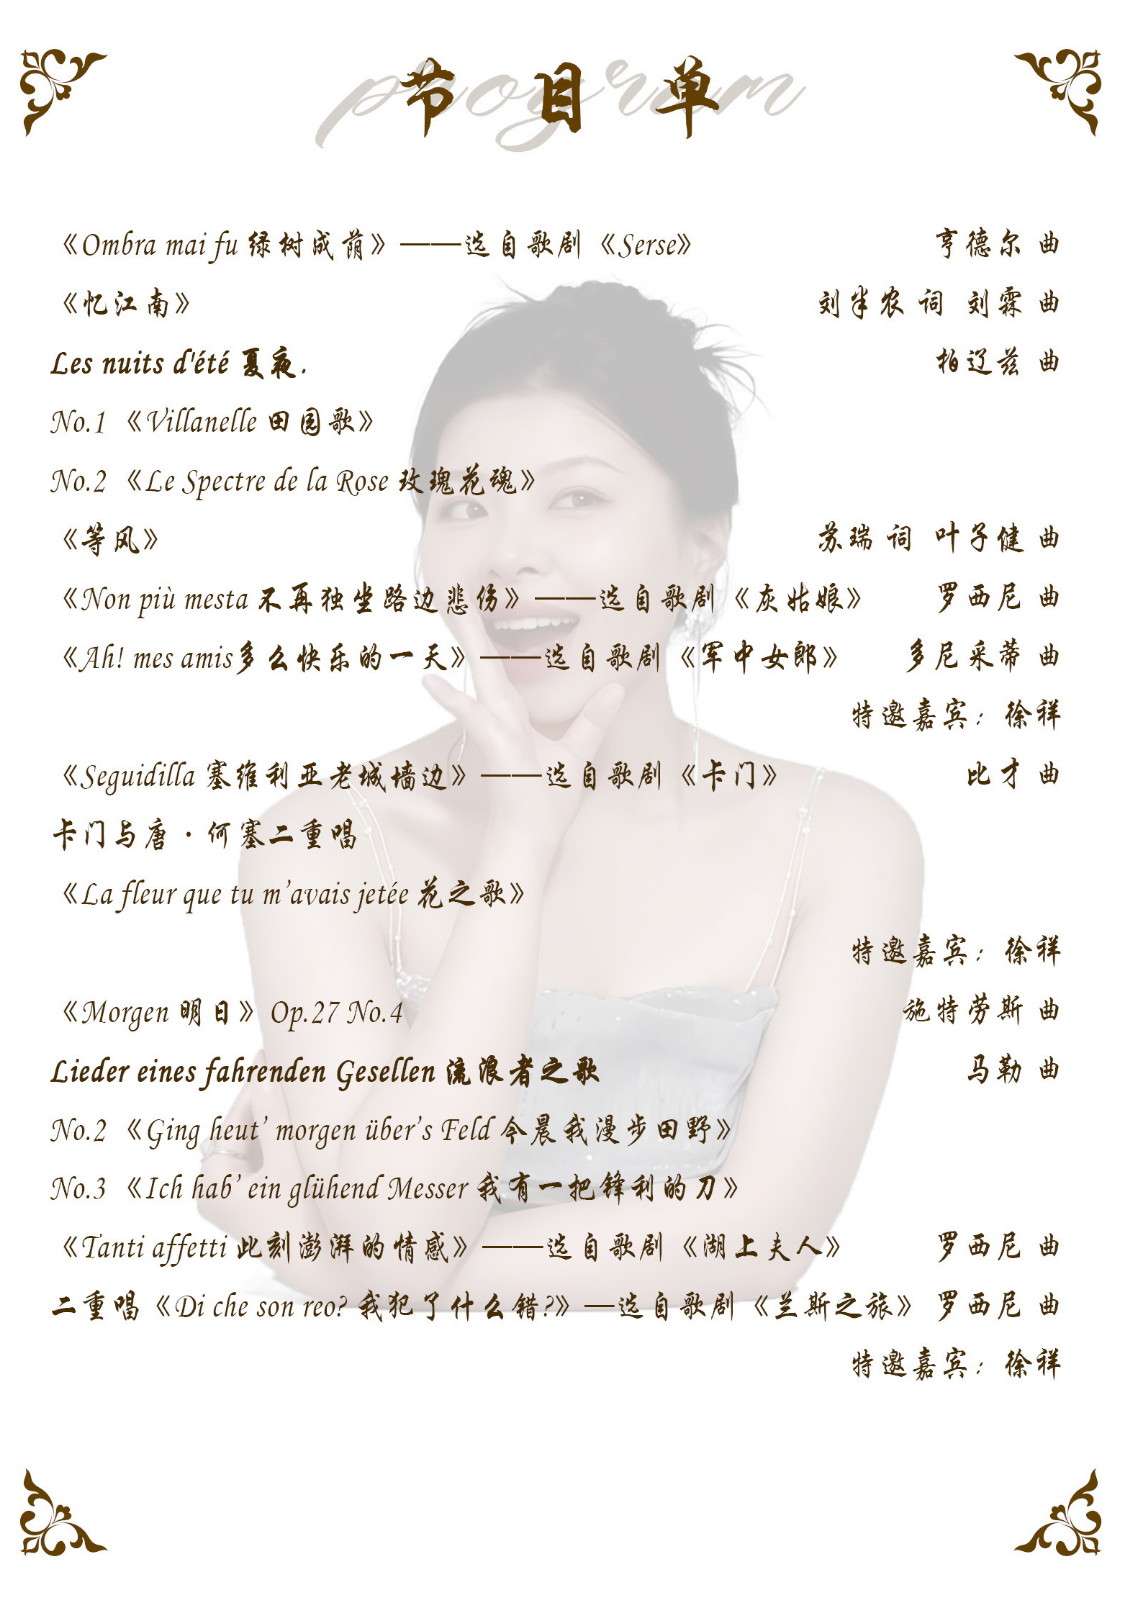 program
节目单
《Ombra mai fu 绿树成荫》——选自歌剧《Serse》 亨德尔 曲
《忆江南》 刘半农 词 刘霖 曲
Les nuits d'été 夏夜. 柏辽兹 曲
No.1 《Villanelle 田园歌》
No.2 《Le Spectre de la Rose 玫瑰花魂》
《等风》 苏瑞 词 叶子健 曲
《Non più mesta 不再独坐路边悲伤》——选自歌剧《灰姑娘》 罗西尼 曲
《Ah! mes amis多么快乐的一天》——选自歌剧《军中女郎》 多尼采蒂 曲
特邀嘉宾：徐祥
《Seguidilla 塞维利亚老城墙边》——选自歌剧《卡门》 比才 曲
卡门与唐·何塞二重唱
《La fleur que tu m’avais jetée 花之歌》
特邀嘉宾：徐祥
《Morgen 明日》Op.27 No.4 施特劳斯 曲
Lieder eines fahrenden Gesellen 流浪者之歌 马勒 曲
No.2 《Ging heut’ morgen über’s Feld 今晨我漫步田野》
No.3 《Ich hab’ ein glühend Messer 我有一把锋利的刀》
《Tanti affetti 此刻澎湃的情感》——选自歌剧《湖上夫人》 罗西尼 曲
二重唱《Di che son reo? 我犯了什么错?》—选自歌剧《兰斯之旅》 罗西尼 曲
特邀嘉宾：徐祥